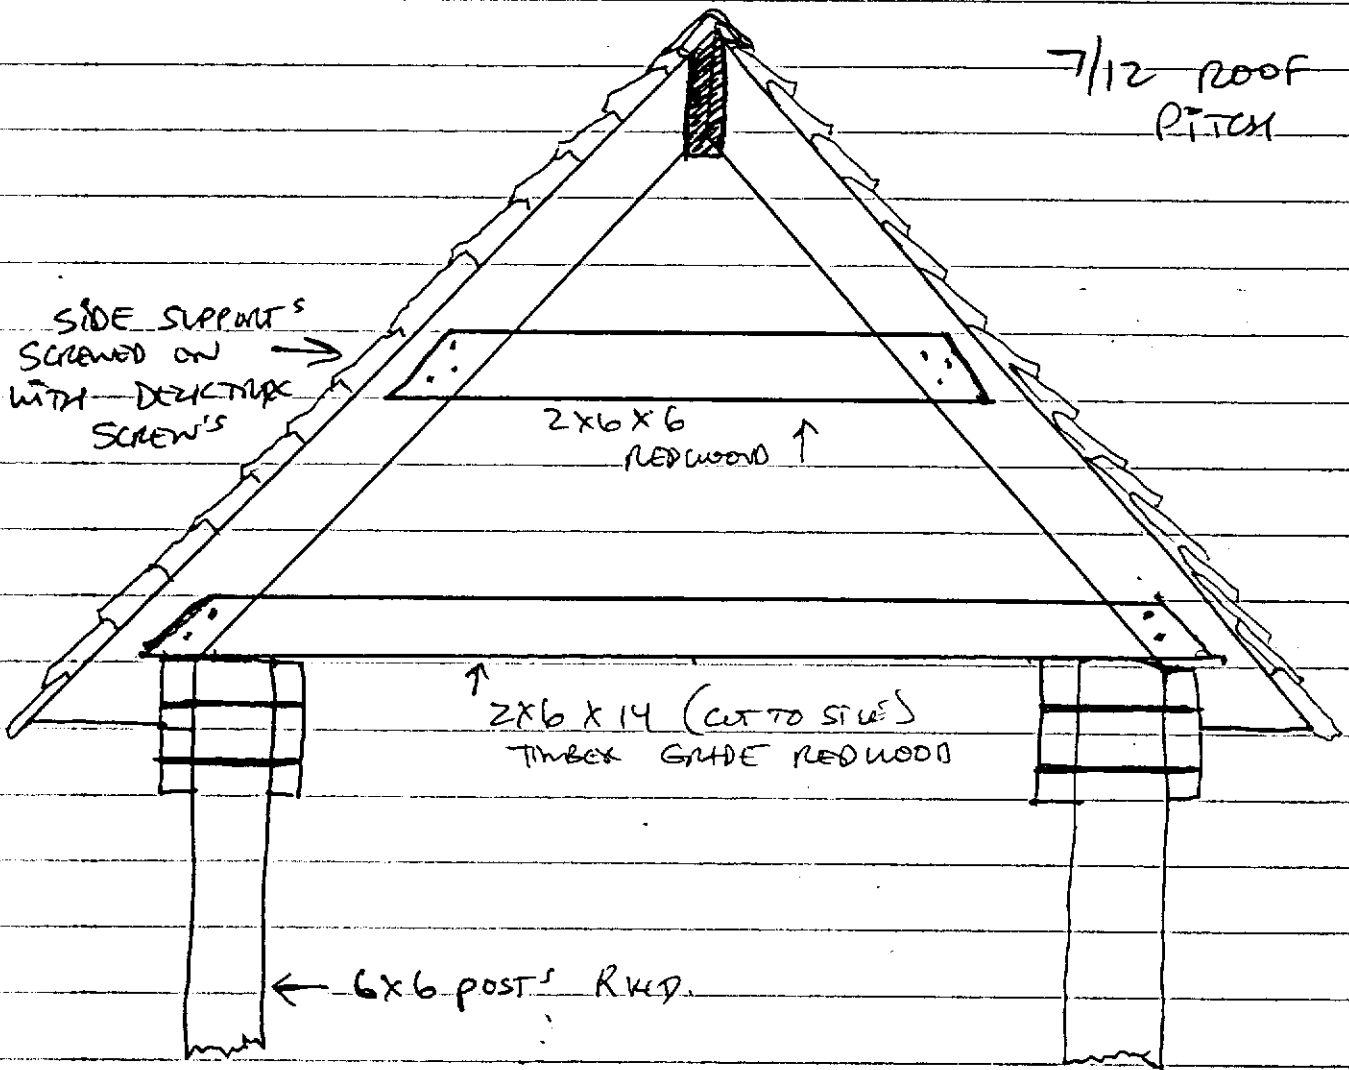 7/12 ROOF
PITCH
SIDE SUPPORTS
SCREWED ON
WITH DECKTREX
SCREW'S
2x6x6
REDWOOD
2x6 x 14 (CUT TO SIZE)
TIMBER GRADE REDWOOD
6x6 POST'S RWD.